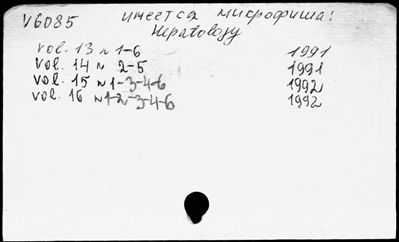 V6085 имеется микрофиша!
Hepatology
vol. 13 N 1-6 1991
vol. 14 N 2-5 1991
vol. 15 N 1-3-4-6 1992
vol. 16 N 1-2-3-4-6 1992